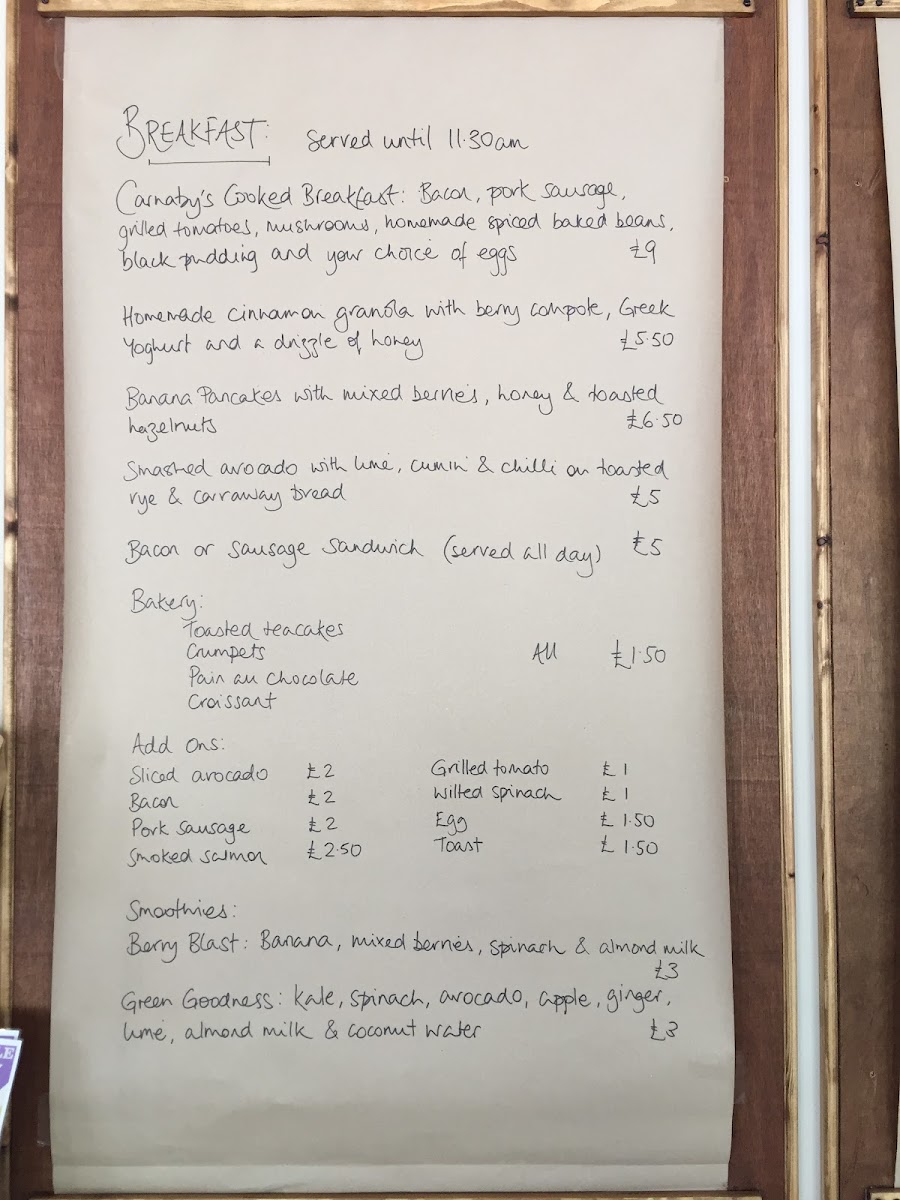 BREAKFAST: Served until 11.30am
Carnaby's Cooked Breakfast: Bacon, pork sausage,
grilled tomatoes, mushrooms, homemade spiced baked beans,
black pudding and your choice of eggs £9
Homemade cinnamon granola with berry compote, Greek
Yoghurt and a drizzle of honey £5.50
Banana Pancakes with mixed berries, honey & toasted
hazelnuts £6.50
Smashed avocado with lime, cumin & chilli on toasted
rye & carraway bread £5
Bacon or Sausage Sandwich (served all day) £5
Bakery:
Toasted teacakes
Crumpets All £1.50
Pain au chocolate
Croissant
Add Ons:
Sliced avocado £2 Grilled tomato £1
Bacon £2 Wilted spinach £1
Pork sausage £2 Egg £1.50
Smoked salmon £2.50 Toast £1.50
Smoothies:
Berry Blast: Banana, mixed berries, spinach & almond milk
£3
Green Goodness: Kale, spinach, avocado, apple, ginger,
lime, almond milk & coconut water £3